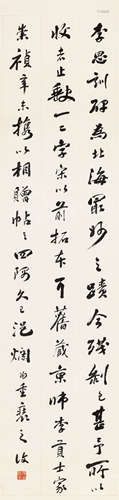 李思訓碑為北海最妙之蹟今殘剝已甚予所以
收者止數一二字宋以前拓本可舊藏京師李貢士家
崇禎辛未携以相贈帖之四隅久已浥爛為重裹之